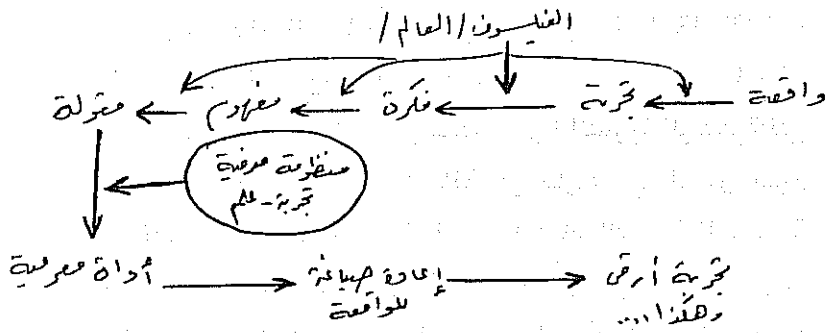 الفيلسوف / العالم /
واقعة ← تجربة ← فكرة ← مفهوم ← مقولة
منظومة معرفية
تجربة - علم
أداة معرفية → إعادة صياغة للواقعة → تجربة أرقى وهكذا....